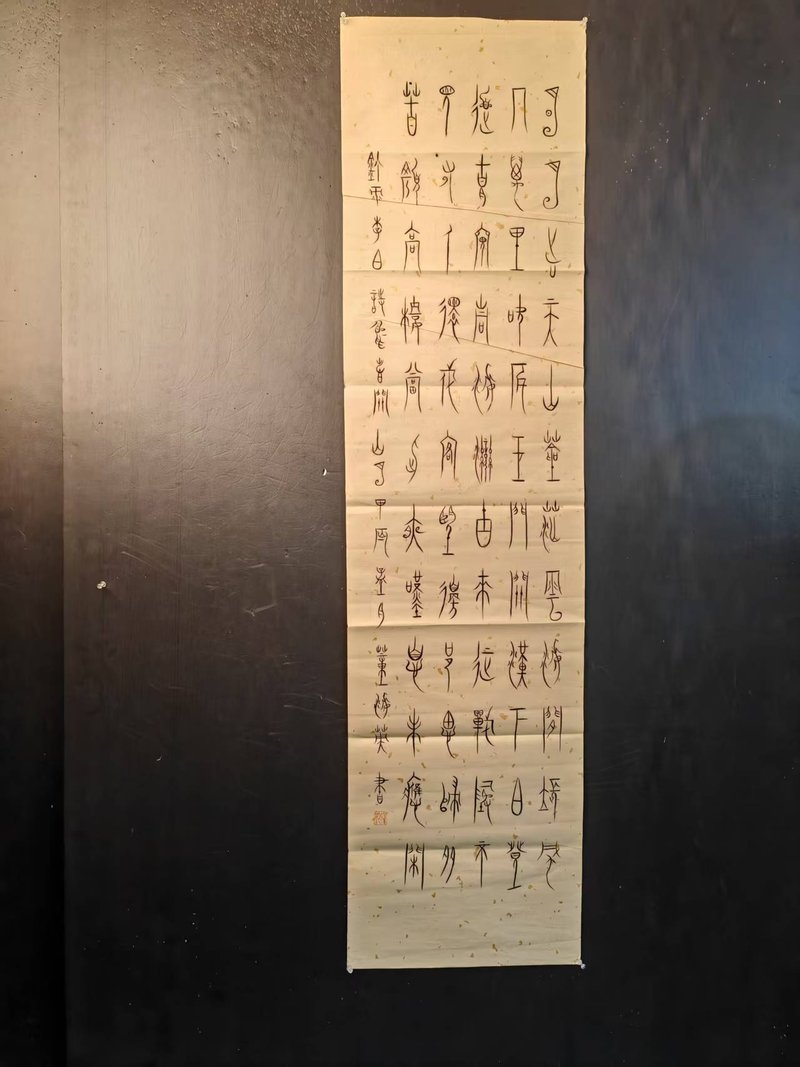 明月出天山蒼茫雲海間長風
几萬里吹度玉門關漢下白登
道胡窺青海灣由來征戰地不
見有人還戍客望邊邑思歸多
苦顏高樓當此夜嘆息未應閒
李白詩關山月甲辰月董海英書